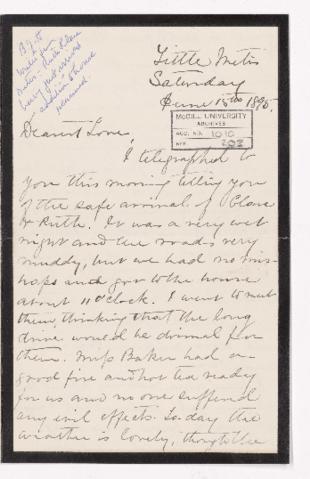 B.J.H
Little Metis
Saturday
June 15th 1895.
McGILL UNIVERSITY
ARCHIVES
ACC. NO. 1010
REF.
Dearest Love,
I telegraphed to
you this morning telling you
of the safe arrival of Clare
& Ruth. It was a very wet
night and the roads very
muddy, but we had no mis-
haps and got to the house
about 11 o'clock. I went to meet
them, thinking that the long
drive would be dismal for
them. Miss Baker had a
good fire and hot tea ready
for us and no one suffered
any evil effects. To-day the
weather is lovely, though the